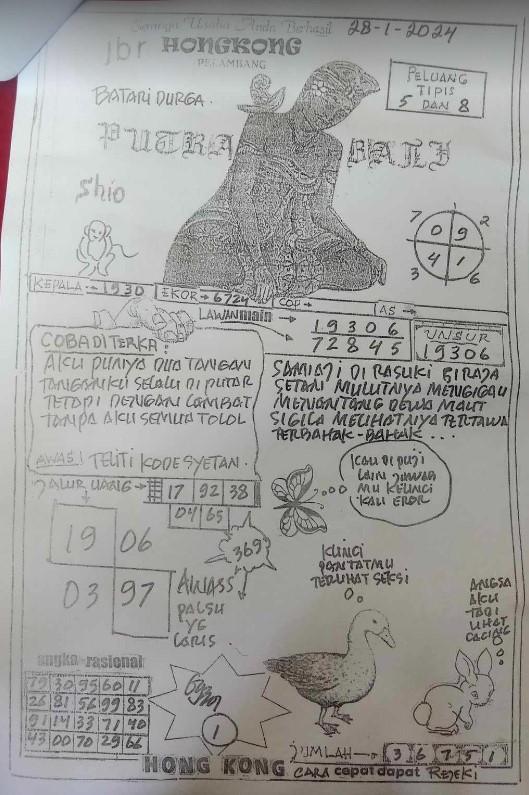 Semoga Usaha Anda Berhasil
28-1-2024
jbr HONGKONG
PELAMBANG
PELUANG
TIPIS
5 DAN 8
BATARI DURGA.
PUTRA BALI
Shio
7 1 2
0 9
4 1
3 6
KEPALA → 1930
EKOR → 6724
COP →
AS →
LAWAN main
19306
72845
UNSUR
19306
COBA DI TERKA:
AKU PUNYA DUA TANGAN
TANGANKU SELALU DI PUTAR
TETAPI DENGAN LAMBAT
TANPA AKU SEMUA TOLOL
SAMIAJI DI RASUKI BIRAJA
SETAN MULUTNYA MENGIGAU
MENANTANG DEWA MAUT
SIGILA MELIHATNYA TERTAWA
TERBAHAK-BAHAK ...
AWAS! TELITI KODE SYETAN.
JALUR UANG →
17 92 38
04 65
KAU DI PUJI
LAIN
MU KELINCI
KAU EROR
19 06
03 97
369
AWASS
PALSU
YG
LARIS
KLINCI
PANTATMU
TERLIHAT SEKSI
ANGSA
AKU
TADI
LIHAT
CACING
angka-rasional
79 30 95 60 11
26 81 56 99 83
91 14 33 71 40
43 00 70 29 66
1
JUMLAH → 3 6 7 5 1
HONG KONG
CARA cepat dapat REJEKI